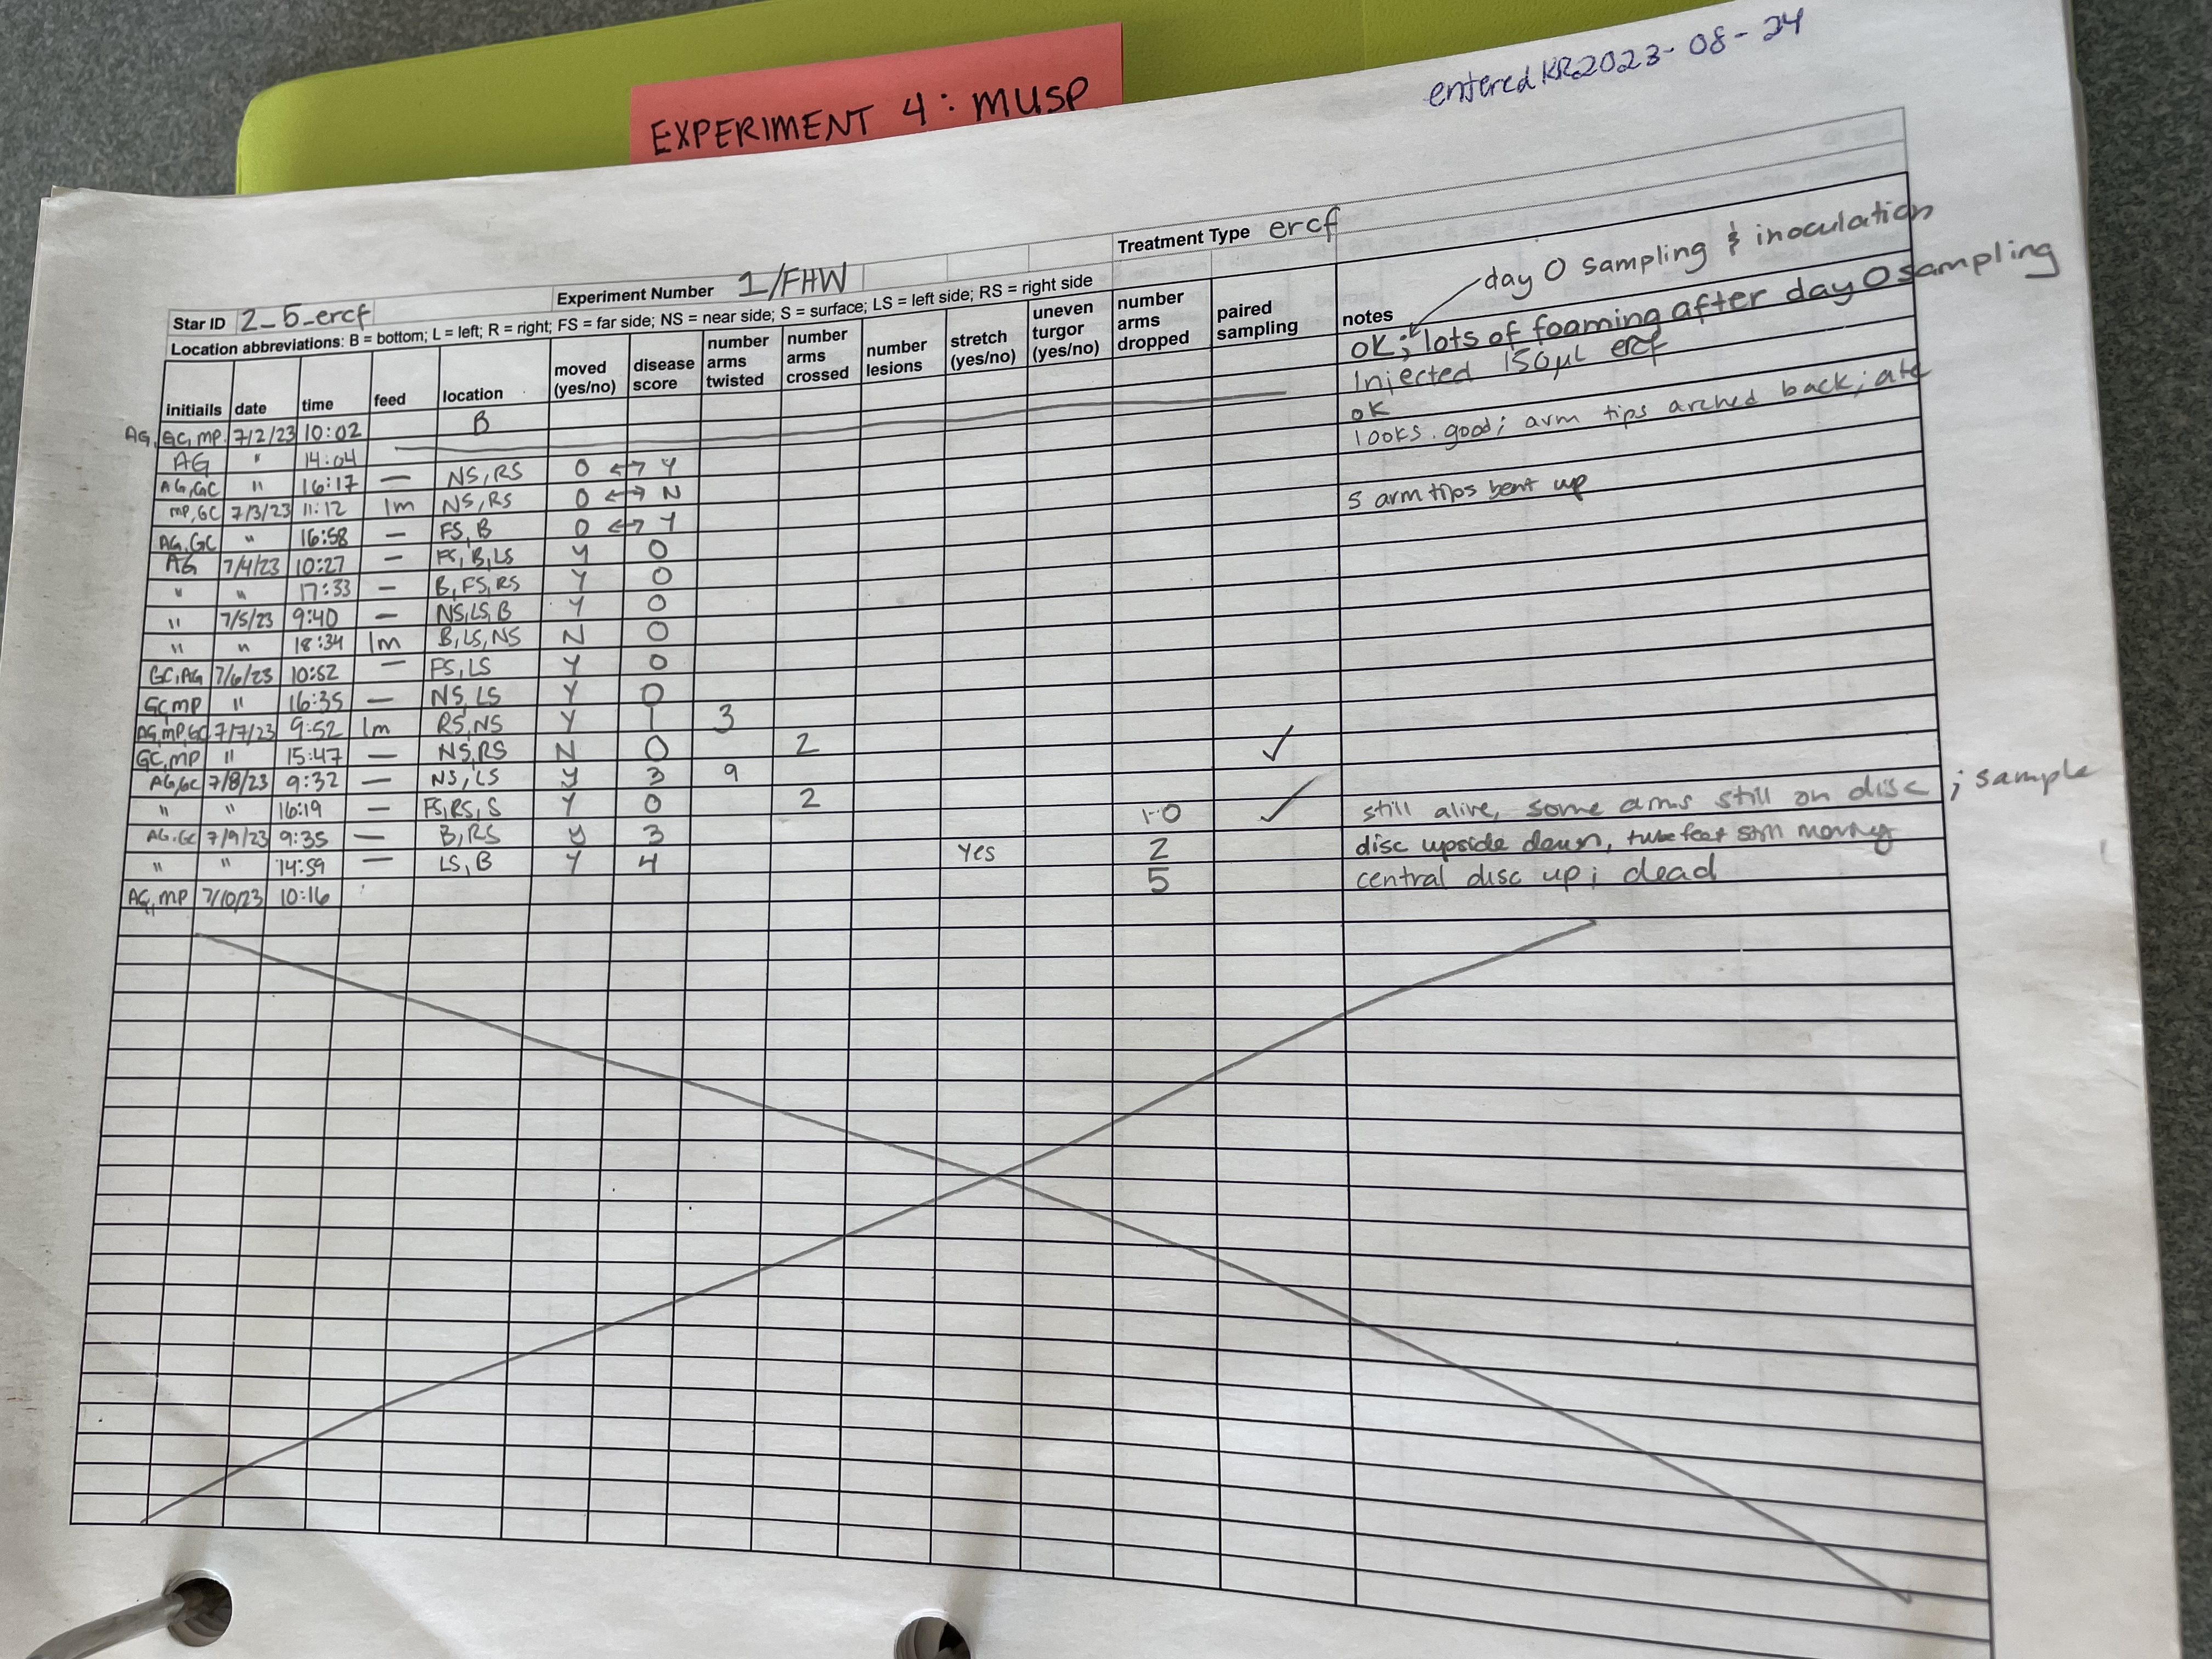 entered KR 2023-08-24
EXPERIMENT 4: MUSP
Treatment Type ercf
Star ID 2_5_ercf Experiment Number 1/FHW
Location abbreviations: B = bottom; L = left; R = right; FS = far side; NS = near side; S = surface; LS = left side; RS = right side
day 0 sampling & inoculation
initiails date time feed location moved (yes/no) disease score number arms twisted number arms crossed number lesions stretch (yes/no) uneven turgor (yes/no) number arms dropped paired sampling notes
AG, GC, MP 7/2/23 10:02 B OK; lots of foaming after day 0 sampling
AG " 14:04 Injected 150µL ercf
AG, GC " 16:17 — NS, RS 0 ↔ Y OK
MP, GC 7/3/23 11:12 1m NS, RS 0 ↔ N looks good; arm tips arched back; ate
AG, GC " 16:58 — FS, B 0 ↔ Y
AG 7/4/23 10:27 — FS, B, LS Y 0 5 arm tips bent up
" " 17:33 — B, FS, RS Y 0
" 7/5/23 9:40 — NS, LS, B Y 0
" " 18:34 1m B, LS, NS N 0
GC, AG 7/6/23 10:52 — FS, LS Y 0
GC, MP " 16:35 — NS, LS Y 0
AG, MP, GC 7/7/23 9:52 1m RS, NS Y 1 3
GC, MP " 15:47 — NS, RS N 0 2
AG, GC 7/8/23 9:32 — NS, LS Y 3 9 ✓
" " 16:19 — FS, RS, S Y 0 2
AG, GC 7/9/23 9:35 — B, RS Y 3 ✓ still alive, some arms still on disc; sample
" " 14:59 — LS, B Y 4 Yes 2 disc upside down, tube feet still moving
AG, MP 7/10/23 10:16 5 central disc up; dead